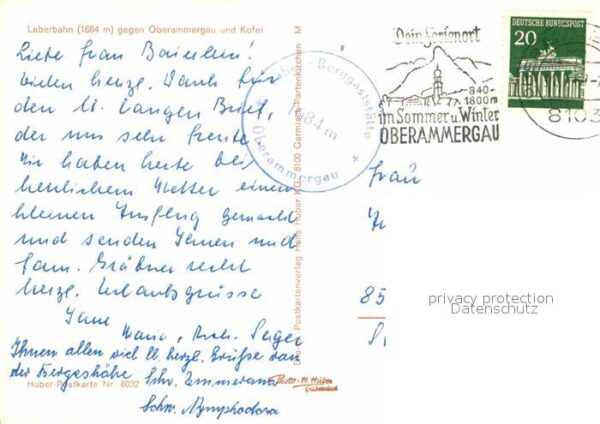 Laberbahn (1684 m) gegen Oberammergau und Kofel
Liebe Frau Baierlein!
Vielen herzl. Dank für
den lb. langen Brief,
der uns sehr freute.
Wir haben heute bei
herrlichem Wetter einen
kleinen Ausflug gemacht
und senden Ihnen und
Fam. Gräbner recht
herzl. Urlaubsgrüsse
Ihnen allen viel lb. herzl. Grüße von
der Bergeshöhe Schw. Zimmermann
Schw. Nymphodora
Huber-Postkarte Nr. 8032
Postkartenverlag Hans Huber KG, 8100 Garmisch-Partenkirchen M
Laber-Berggaststätte
1684 m
Oberammergau
Dein Ferienort
840-
1800m
im Sommer u. Winter
OBERAMMERGAU
DEUTSCHE BUNDESPOST
20
8103
Frau
85
privacy protection
Datenschutz